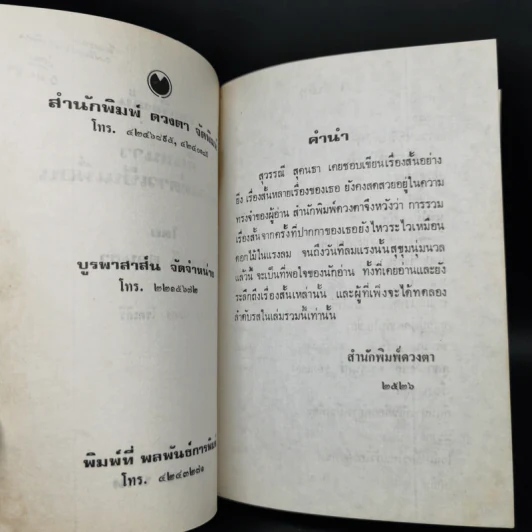 สำนักพิมพ์ ดวงตา
โทร.
บูรพาสาส์น จัดจำหน่าย
โทร. ๒๒๑๕๖๗๒
พิมพ์ที่ พลพันธ์การพิมพ์
โทร. ๔๒๔๓๒๘๑
คำนำ
สุวรรณี สุคนธา เคยชอบเขียนเรื่องสั้นอย่าง
ยิ่ง เรื่องสั้นหลายเรื่องของเธอ ยังคงสดสวยอยู่ในความ
ทรงจำของผู้อ่าน สำนักพิมพ์ดวงตาจึงหวังว่า การรวม
เรื่องสั้นจากครั้งที่ปากกาของเธอยังไหวระไวเหมือน
ดอกไม้ในแรงลม จนถึงวันที่ลมแรงนั้นสุขุมนุ่มนวล
แล้วนี้ จะเป็นที่พอใจของนักอ่าน ทั้งที่เคยอ่านและยัง
ระลึกถึงเรื่องสั้นเหล่านั้น และผู้ที่เพิ่งจะได้ทดลอง
ลำดับรสในเล่มรวมนี้เท่านั้น
สำนักพิมพ์ดวงตา
๒๕๒๖